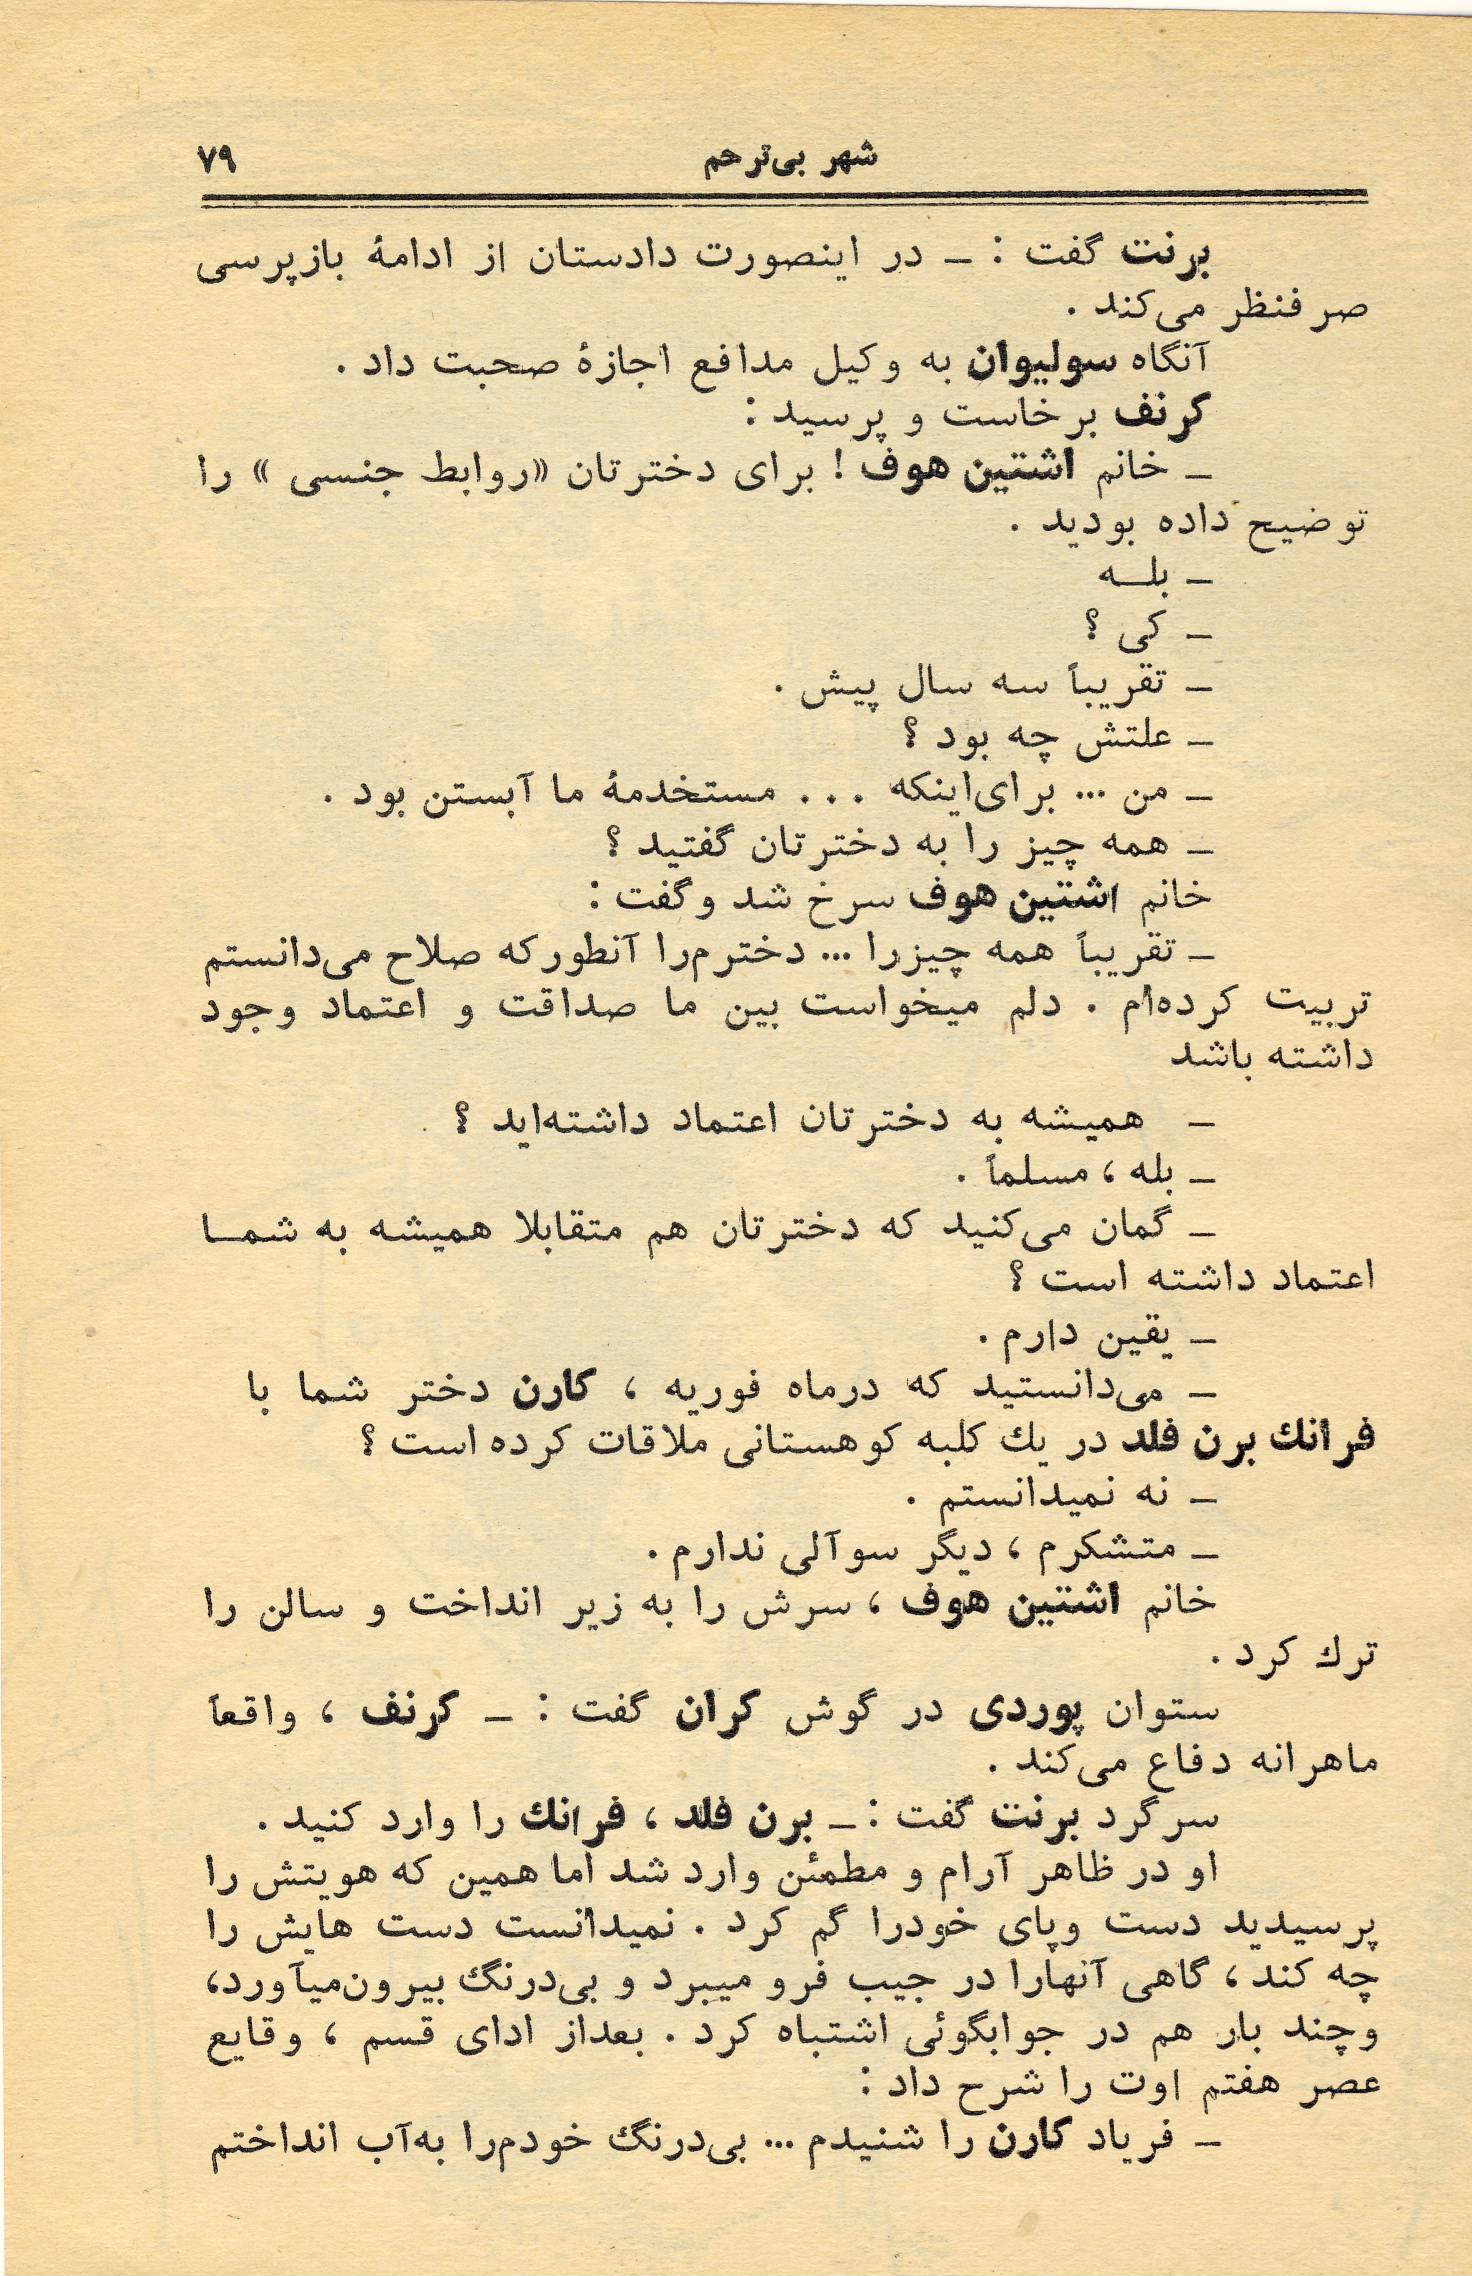 شهر بی‌ترحم ۷۹
برنت گفت : ــ در اینصورت دادستان از ادامهٔ بازپرسی
صرفنظر می‌کند .
آنگاه سولیوان به وکیل مدافع اجازهٔ صحبت داد .
کرنف برخاست و پرسید :
ــ خانم اشتین هوف ! برای دخترتان «روابط جنسی » را
توضیح داده بودید .
ــ بلــه
ــ کی ؟
ــ تقریباً سه سال پیش .
ــ علتش چه بود ؟
ــ من ... برای‌اینکه . . . مستخدمهٔ ما آبستن بود .
ــ همه چیز را به دخترتان گفتید ؟
خانم اشتین هوف سرخ شد وگفت :
ــ تقریباً همه چیزرا ... دخترم‌را آنطورکه صلاح می‌دانستم
تربیت کرده‌ام . دلم میخواست بین ما صداقت و اعتماد وجود
داشته باشد
ــ همیشه به دخترتان اعتماد داشته‌اید ؟
ــ بله ، مسلماً .
ــ گمان می‌کنید که دخترتان هم متقابلا همیشه به شمــا
اعتماد داشته است ؟
ــ یقین دارم .
ــ می‌دانستید که درماه فوریه ، کارن دختر شما با
فرانك برن فلد در یك کلبه کوهستانی ملاقات کرده است ؟
ــ نه نمیدانستم .
ــ متشکرم ، دیگر سوآلی ندارم .
خانم اشتین هوف ، سرش را به زیر انداخت و سالن را
ترك کرد .
ستوان پوردی در گوش کران گفت : ــ کرنف ، واقعاً
ماهرانه دفاع می‌کند .
سرگرد برنت گفت : ــ برن فلد ، فرانك را وارد کنید .
او در ظاهر آرام و مطمئن وارد شد اما همین که هویتش را
پرسیدید دست وپای خودرا گم کرد . نمیدانست دست هایش را
چه کند ، گاهی آنهارا در جیب فرو میبرد و بی‌درنگ بیرون‌میآورد،
وچند بار هم در جوابگوئی اشتباه کرد . بعداز ادای قسم ، وقایع
عصر هفتم اوت را شرح داد :
ــ فریاد کارن را شنیدم ... بی‌درنگ خودم‌را به‌آب انداختم